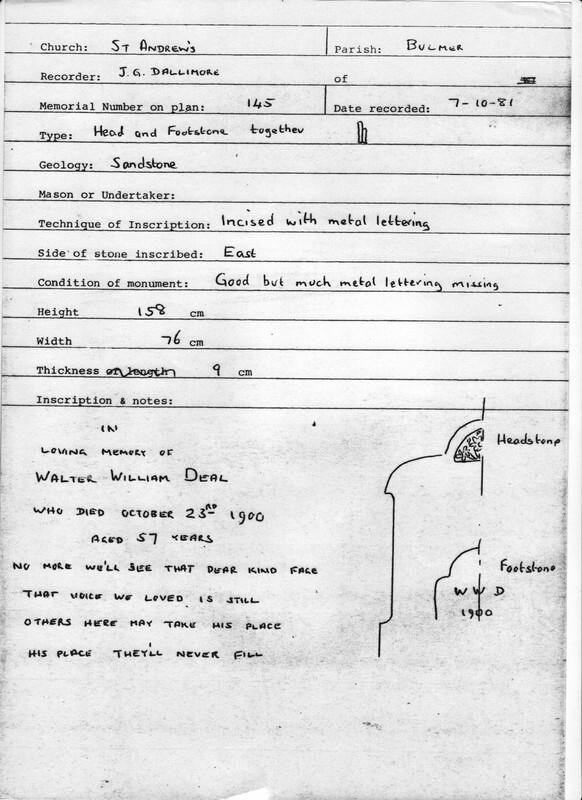 Church: ST ANDREW'S Parish: BULMER
Recorder: J.G. DALLIMORE of
Memorial Number on plan: 145 Date recorded: 7-10-81
Type: Head and Footstone together
Geology: Sandstone
Mason or Undertaker:
Technique of Inscription: Incised with metal lettering
Side of stone inscribed: East
Condition of monument: Good but much metal lettering missing
Height 158 cm
Width 76 cm
Thickness or length 9 cm
Inscription & notes:
IN
LOVING MEMORY OF
WALTER WILLIAM DEAL
WHO DIED OCTOBER 23RD 1900
AGED 57 YEARS
NO MORE WE'LL SEE THAT DEAR KIND FACE
THAT VOICE WE LOVED IS STILL
OTHERS HERE MAY TAKE HIS PLACE
HIS PLACE THEY'LL NEVER FILL
Headstone
Footstone
W W D
1900